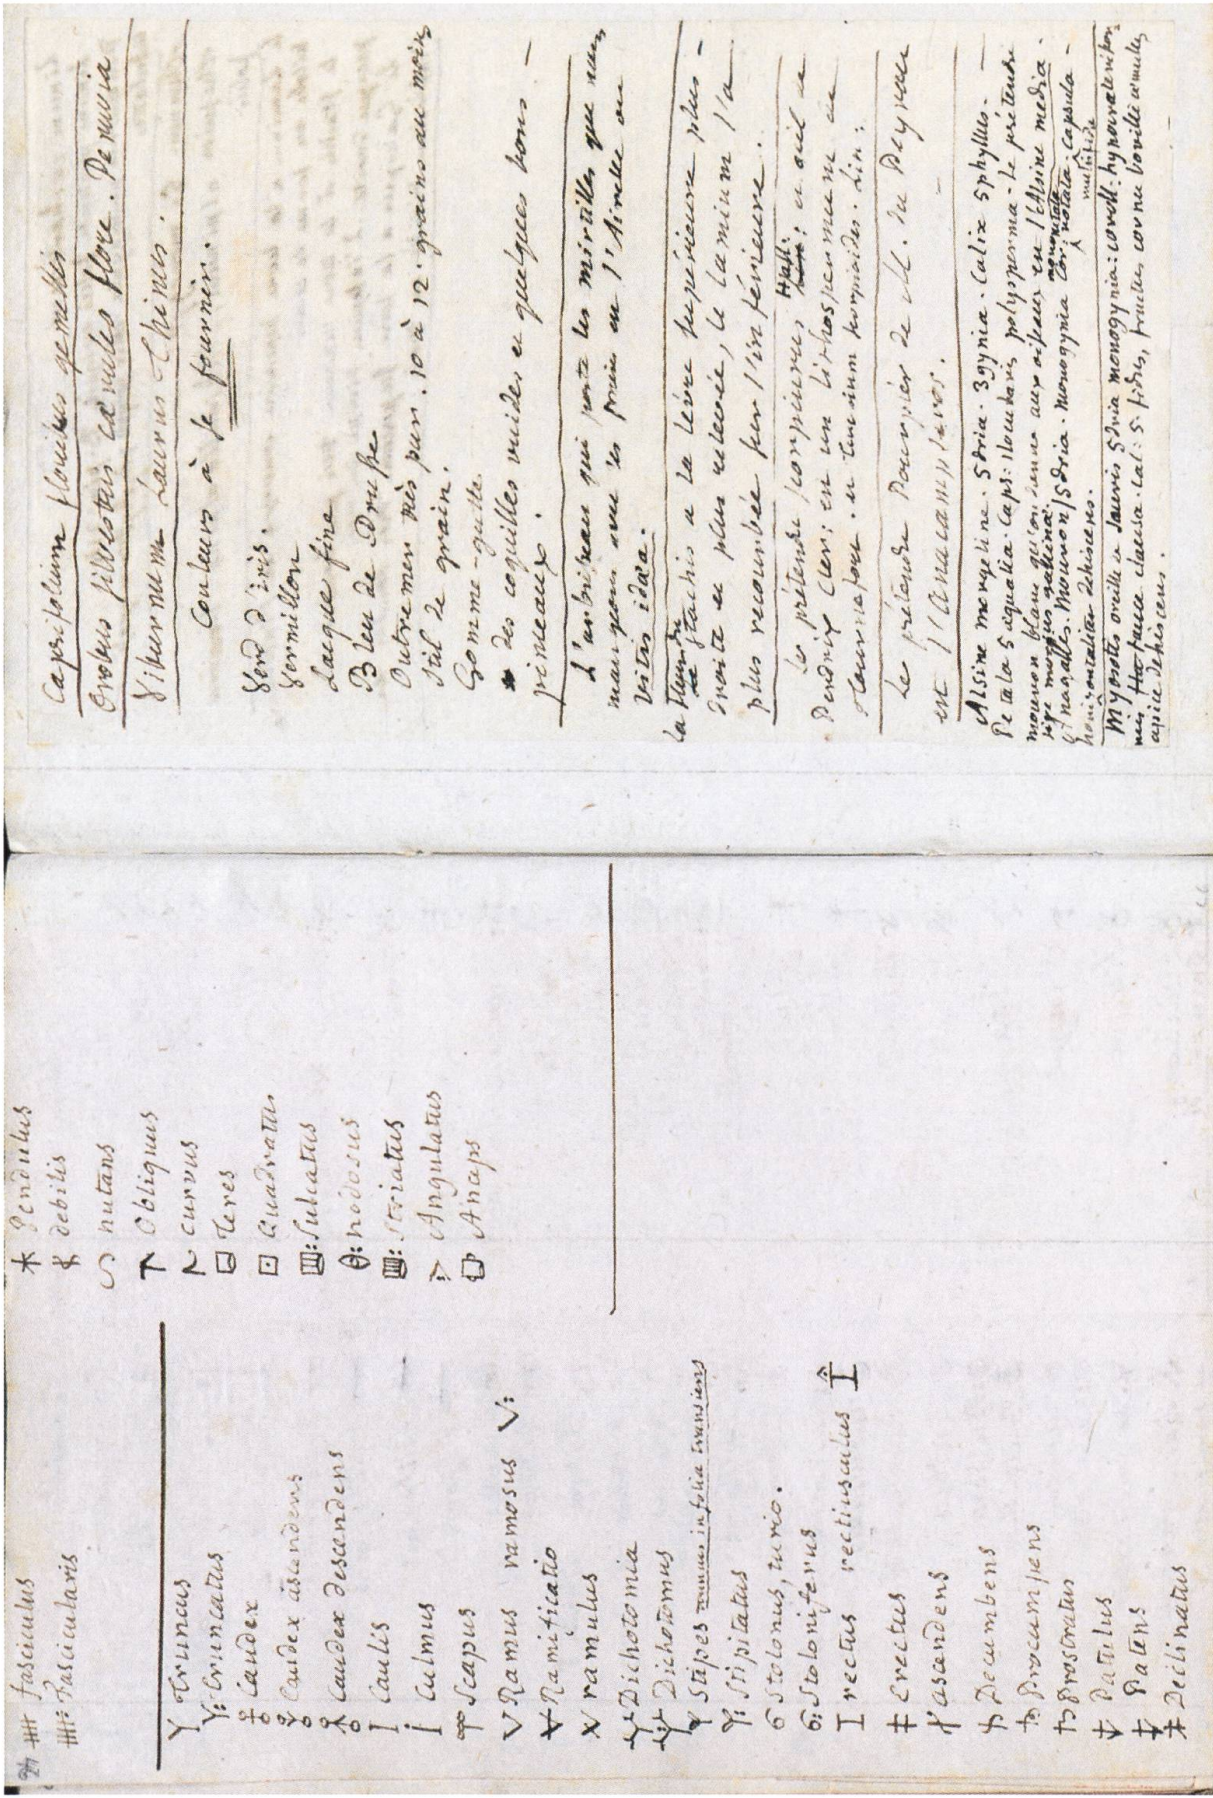 24
fasciculus
Fascicularis
Truncus
Truncatus
Caudex
Caudex ascendens
Caudex descendens
Caulis
Culmus
Scapus
Ramus ramosus V:
Ramificatio
ramulus
Dichotomia
Dichotomus
Stipes ramus in folia transiens
Stipitatus
Stolonus, turio.
Stoloniferus
rectus rectiusculus
Erectus
ascendens
Decumbens
Procumpens
Prostratus
Patulus
Patens
Declinatus
Pendulus
debilis
nutans
Obliquus
curvus
Teres
Quadratus
Sulcatus
nodosus
Striatus
Angulatus
Anceps
Caprifolium floribus gemellis
Orobus silvestris cæruleo flore. Peruvia
Viburnum Laurus Thinus.
Couleurs à se fournir.
Verd d'iris.
Vermillon
Laque fine
Bleu de Prusse
Outremer très pur. 10 à 12. grains au moins
Stil de grain.
Gomme-gutte.
des coquilles vuides et quelques bons
pinceaux.
L'arbrisseau qui porte les mirtilles que nous
mangeons avec les
Vitis idæa.
La fleur du Stachis a la lévre supérieure plus
droite et plus relevée, le Lamium l'a
plus recourbée sur l'inférieure.
Le prétendu Hall: en est un
Lithospermum de
Tournefort. Lin:
Le prétendu Pourpier de M. du Peyrou
est
Alsine morgeline. 5dria. 3gynia. Calix 5phyllus.
Petala 5 æqualia. Caps: 1locularis polysperma. Le prétendu
mouron blanc qu'on donne aux oiseaux est l'Alsine media
sive morsus gallinæ.
Anagallis. Mouron 5dria. monogynia cor: rotata. Capsula
horisontaliter dehiscens.
Myosotis oreille de souris 5dria monogynia: coroll:
fauce clausa. Cal: 5.fidus,
apice dehiscens.